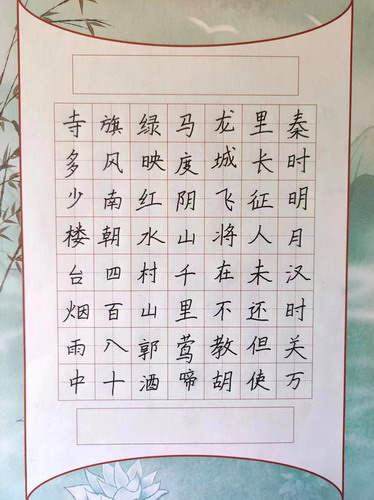 秦时明月汉时关万
里长征人未还但使
龙城飞将在不教胡
马度阴山千里莺啼
绿映红水村山郭酒
旗风南朝四百八十
寺多少楼台烟雨中